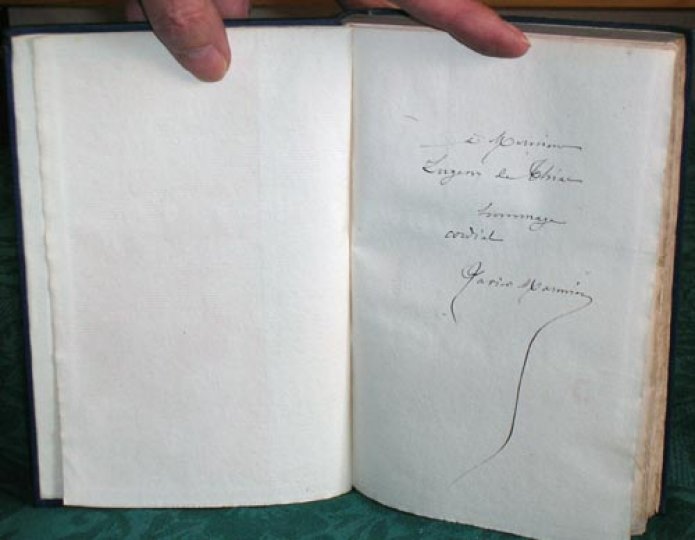 à Monsieur
Eugène de Thiac
hommage
cordial
Xavier Marmier